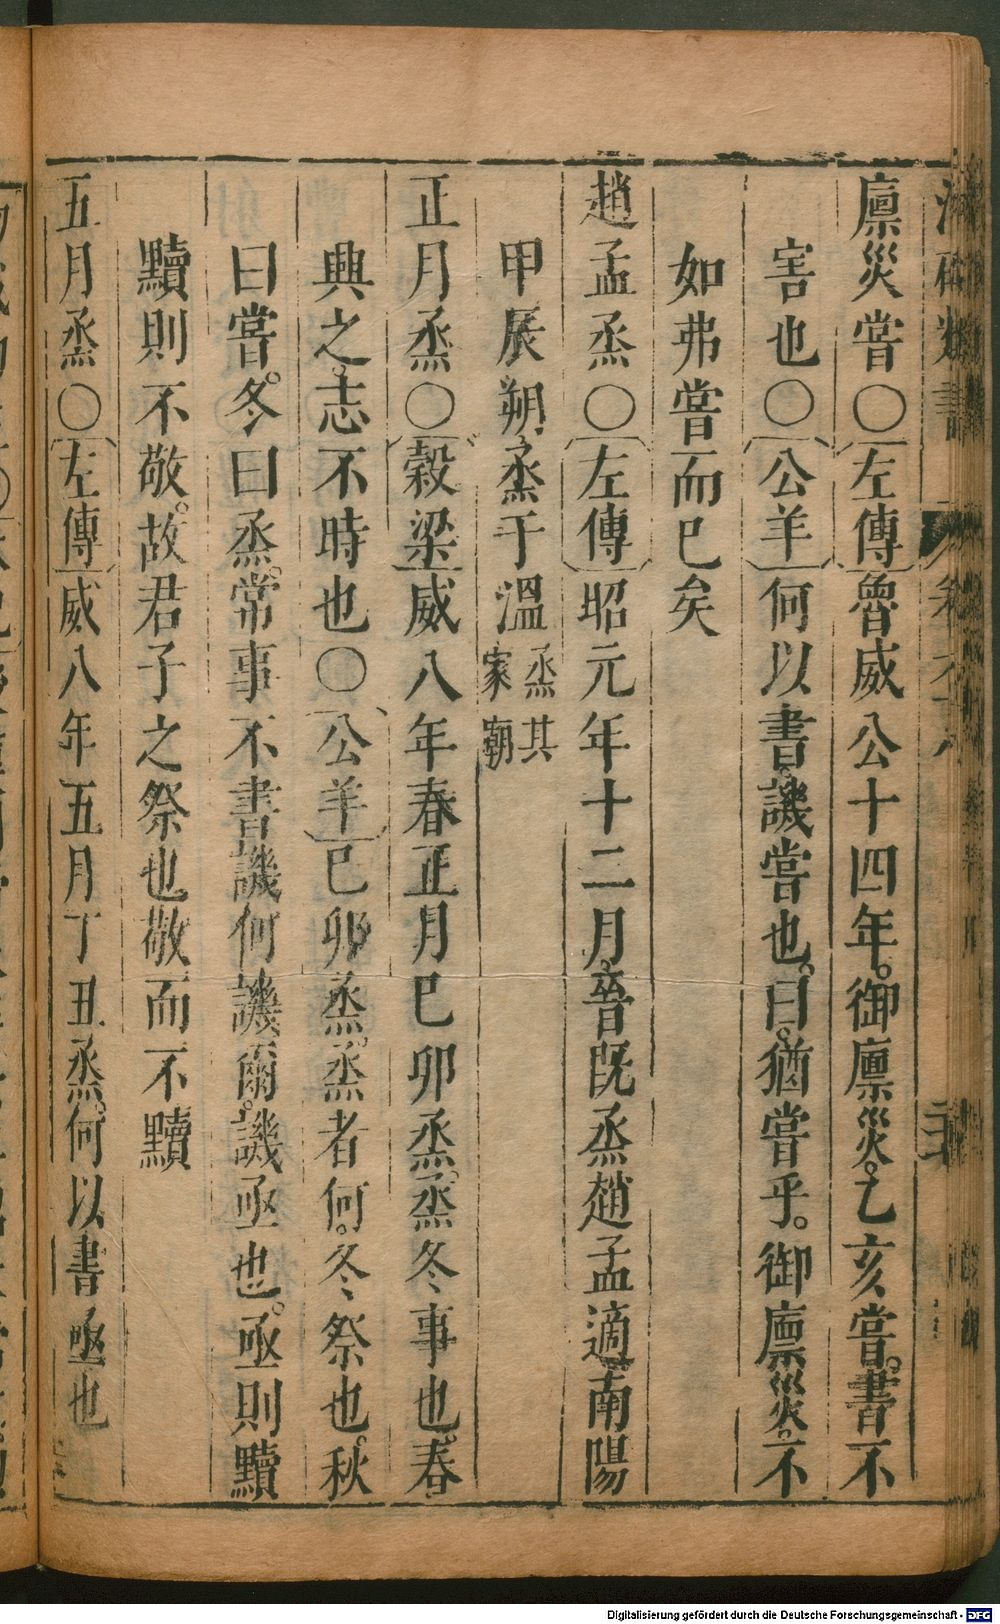 廩災嘗〇左傳魯威公十四年。御廩災。乙亥嘗。書不
害也〇公羊何以書。譏嘗也。曰。猶嘗乎。御廩災。不
如弗嘗而巳矣
趙孟烝〇左傳昭元年十二月。晉既烝趙孟適南陽
甲辰朔烝于溫烝其家朝
正月烝〇穀梁威八年春正月巳卯烝。烝冬事也。春
興之。志不時也〇公羊巳卯烝。烝者何。冬祭也。秋
曰嘗。冬曰烝。常事不書譏何譏爾。譏亟也。亟則黷
黷則不敬。故君子之祭也敬而不黷
五月烝〇左傳威八年五月丁丑烝。何以書亟也
Digitalisierung gefördert durch die Deutsche Forschungsgemeinschaft - DFG